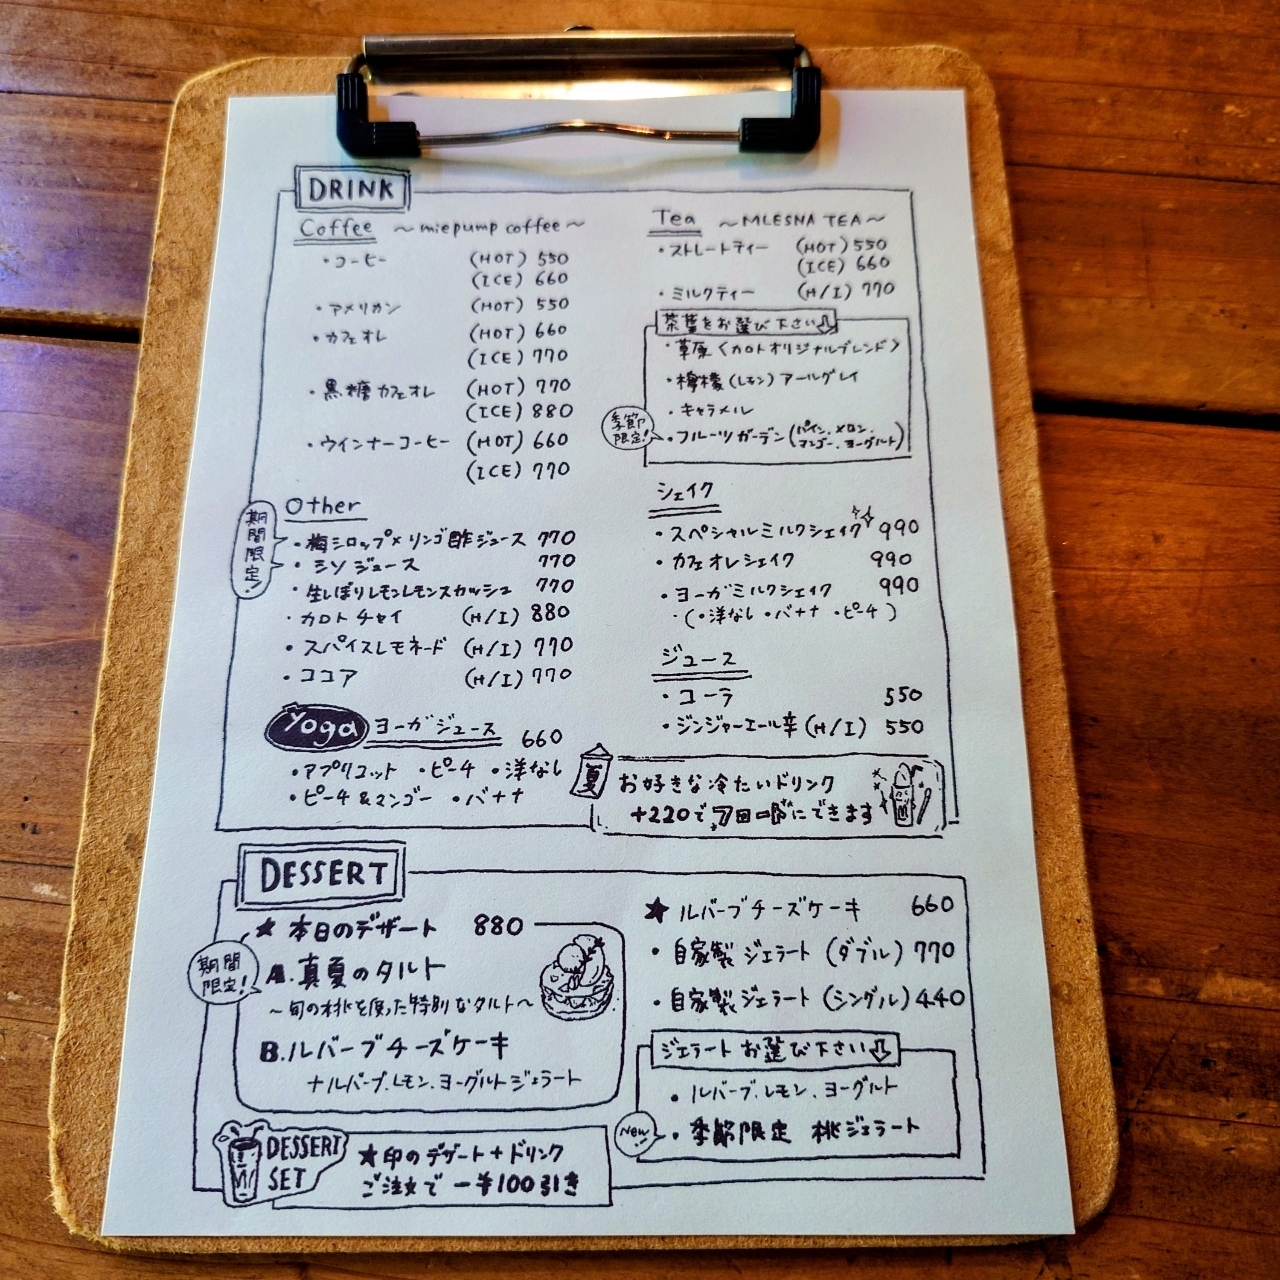 DRINK
Coffee ～miepump coffee～
・コーヒー (HOT) 550
(ICE) 660
・アメリカン (HOT) 550
・カフェオレ (HOT) 660
(ICE) 770
・黒糖カフェオレ (HOT) 770
(ICE) 880
・ウインナーコーヒー (HOT) 660
(ICE) 770
Other
期間限定!
・梅シロップ×リンゴ酢ジュース 770
・シソジュース 770
・生しぼりレモンレモンスカッシュ 770
・カロトチャイ (H/I) 880
・スパイスレモネード (H/I) 770
・ココア (H/I) 770
Yoga ヨーガジュース 660
・アプリコット ・ピーチ ・洋なし
・ピーチ&マンゴー ・バナナ
Tea ～MLESNA TEA～
・ストレートティー (HOT) 550
(ICE) 660
・ミルクティー (H/I) 770
茶葉をお選び下さい⇩
・草原〈カロトオリジナルブレンド〉
・檸檬(レモン)アールグレイ
・キャラメル
季節限定!
・フルーツガーデン(パイン、メロン、
マンゴー、ヨーグルト)
シェイク
・スペシャルミルクシェイク 990
・カフェオレシェイク 990
・ヨーガミルクシェイク 990
(・洋なし ・バナナ ・ピーチ)
ジュース
・コーラ 550
・ジンジャーエール辛(H/I) 550
夏
お好きな冷たいドリンク
+220で にできます
DESSERT
★ 本日のデザート 880
期間限定!
A.真夏のタルト
～旬の桃を使った特別なタルト～
B.ルバーブチーズケーキ
+ルバーブ、レモン、ヨーグルトジェラート
★ ルバーブチーズケーキ 660
・自家製ジェラート(ダブル) 770
・自家製ジェラート(シングル) 440
ジェラートお選び下さい⇩
・ルバーブ、レモン、ヨーグルト
New!
・季節限定 桃ジェラート
DESSERT SET
★印のデザート+ドリンク
ご注文で ー¥100引き